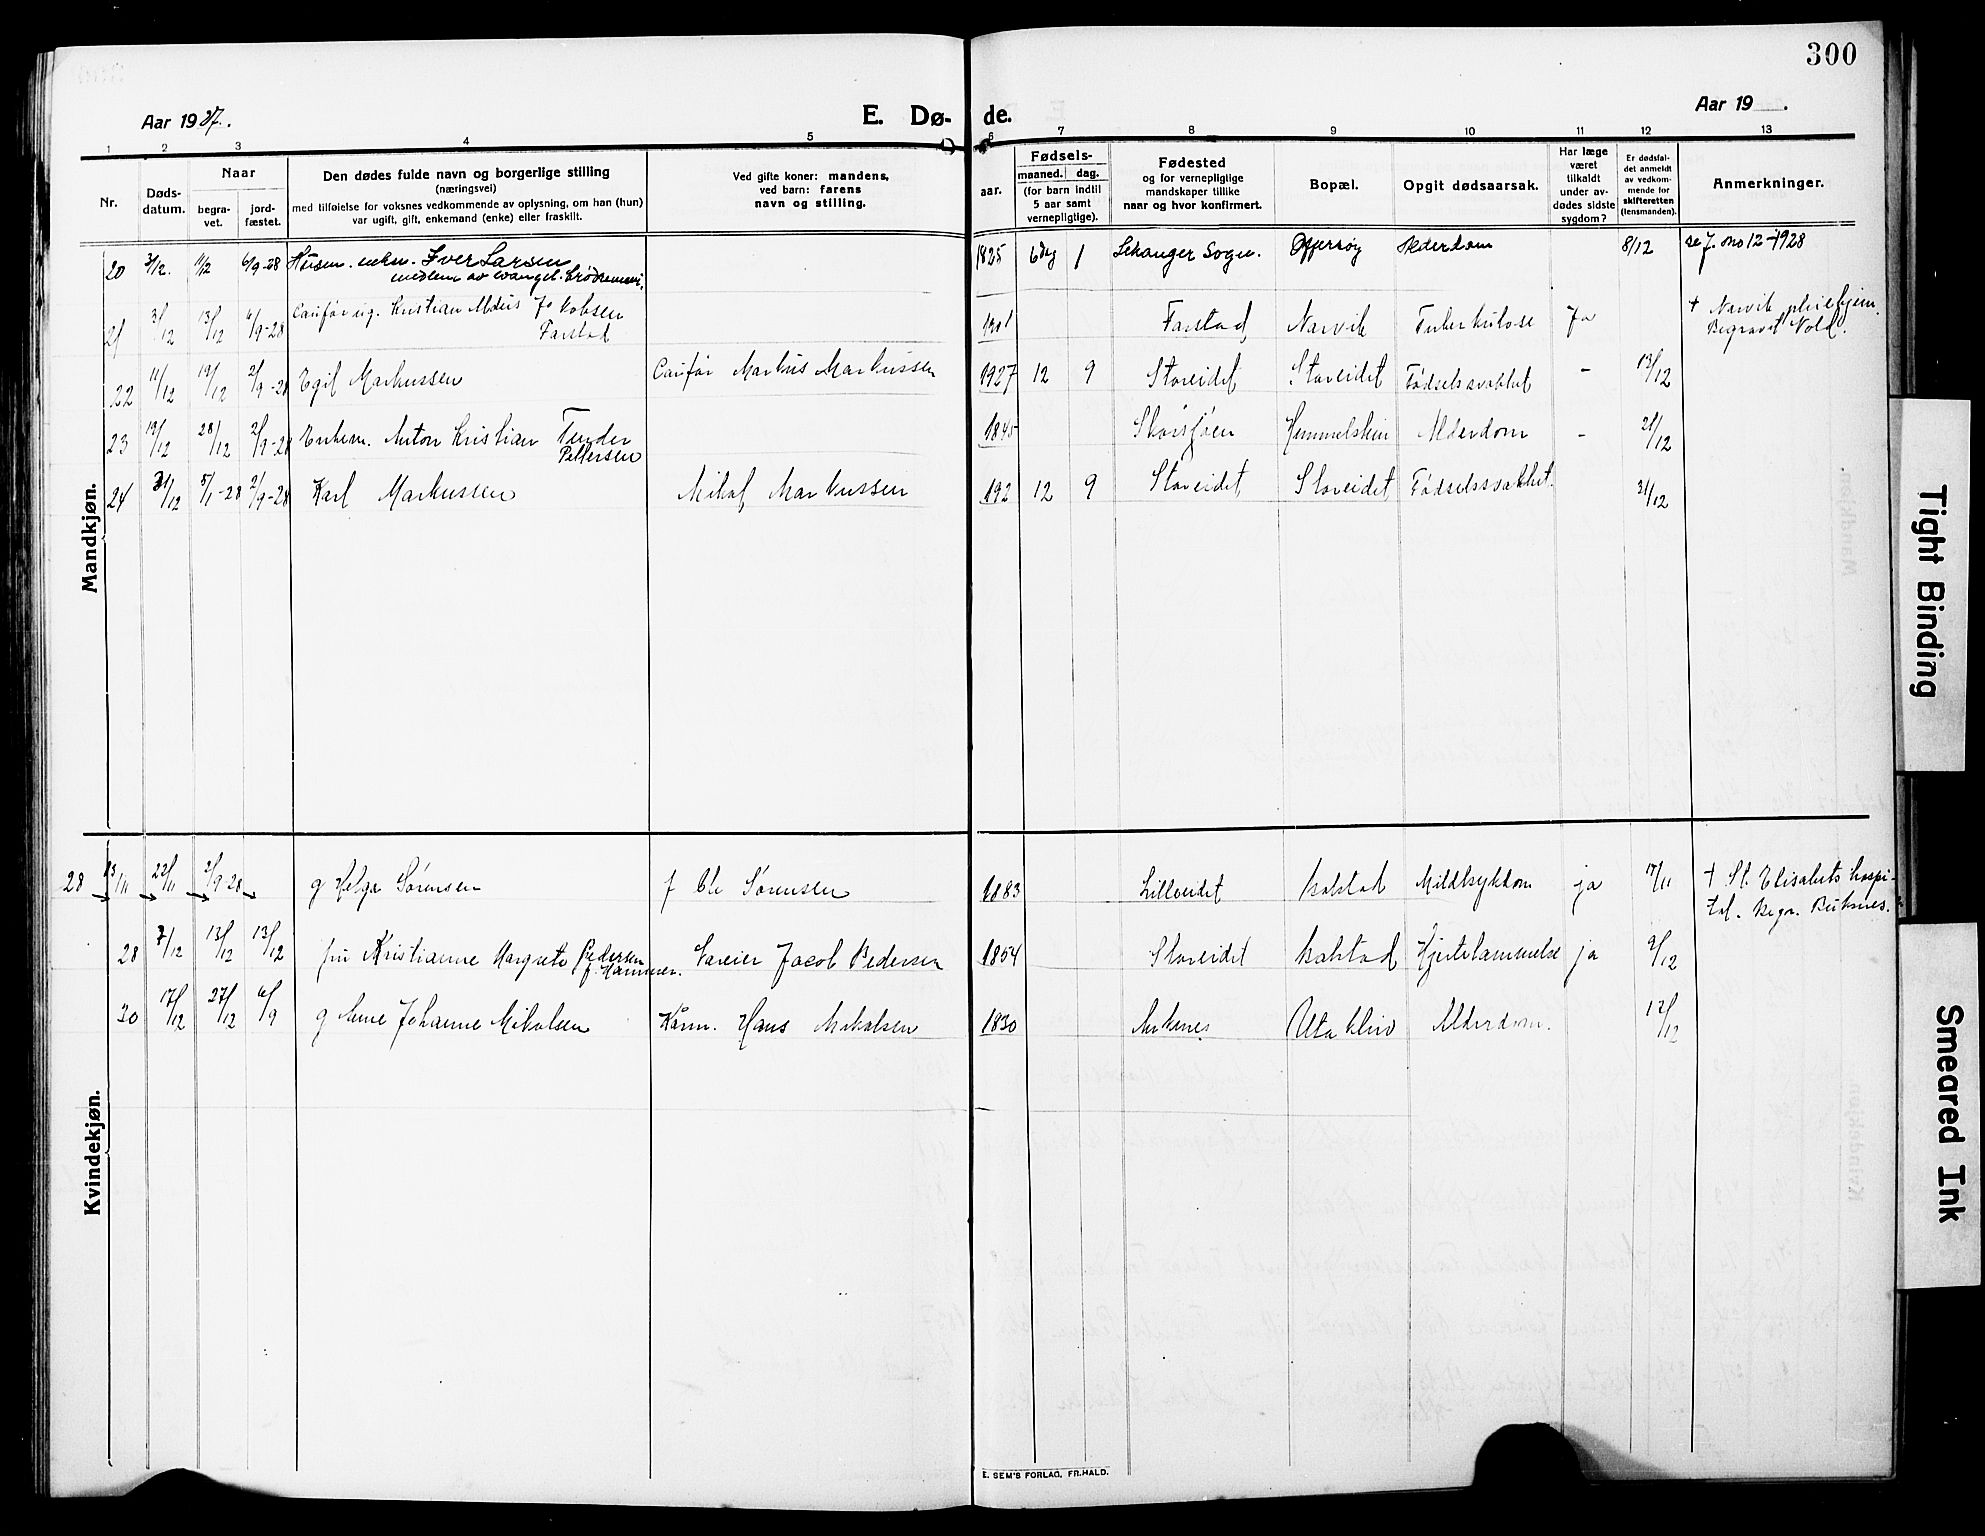 300
Aar 1927.
E. Dø- de.
Aar 19 .
1 2 3 4 5 6 7 8 9 10 11 12 13
Nr.
Døds-
datum.
Naar
begra-
vet.
jord-
fæstet.
Den dødes fulde navn og borgerlige stilling
(næringsvei)
med tilføielse for voksnes vedkommende av oplysning, om han (hun)
var ugift, gift, enkemand (enke) eller fraskilt.
Ved gifte koner: mandens,
ved barn: farens
navn og stilling.
aar.
Fødsels-
maaned. dag.
(for barn indtil
5 aar samt
vernepligtige).
Fødested
og for vernepligtige
mandskaper tillike
naar og hvor konfirmert.
Bopæl.
Opgit dødsaarsak.
Har læge
været
tilkaldt
under av-
dødes sidste
sygdom?
Er dødsfal-
det anmeldt
av vedkom-
mende for
skifteretten
(lensmanden).
Anmerkninger.
Mandkjøn.
20 3/12. 11/12 6/9-28 Iver Larsen 1825 6 1 Sogn. Offersøy Alderdom 8/12 se J. no 12-1928
medlem av evangel.
21 3/12 13/12 6/9-28 ug. Kristian Jakobsen 1901 Farstad Narvik Tuberkulose Ja + Narvik pleiehjem.
Farstad Begravet Vold.
22 11/12 19/12 2/9-28 Egil Markussen Markus Markussen 1927 12 9 Storeidet Storeidet Fødselssvakhet - 13/12
23 19/12 28/12 2/9-28 Enkem. Anton Kristian Tender 1845 Hemmelstein Alderdom - 21/12
Pettersen
24 31/12 5/1-28 2/9-28 Karl Markussen Mikal Markussen 192 12 9 Storeidet Storeidet Fødselssvakhet. 31/12
Kvindekjøn.
28 13/11 22/11 2/9-28 g Helga Sørensen f Ole Sørensen 1883 Lilleeidet Kolstad Mildtsykdom ja 17/11 + St. Elisabets hospi-
tal. Begr. Buksnes.
28 7/12 13/12 13/12 fru Kristianne Margrete Pedersen Vareier Jacob Pedersen 1854 Storeidet Kolstad Hjertelammelse ja 9/12
f. Hammer.
30 17/12 27/12 6/9 g Anne Johanne Mikalsen Kårm. Hans Mikalsen 1830 Utakleiv Alderdom. 12/12
E. SEM'S FORLAG, FR.HALD.
Tight Binding
Smeared Ink